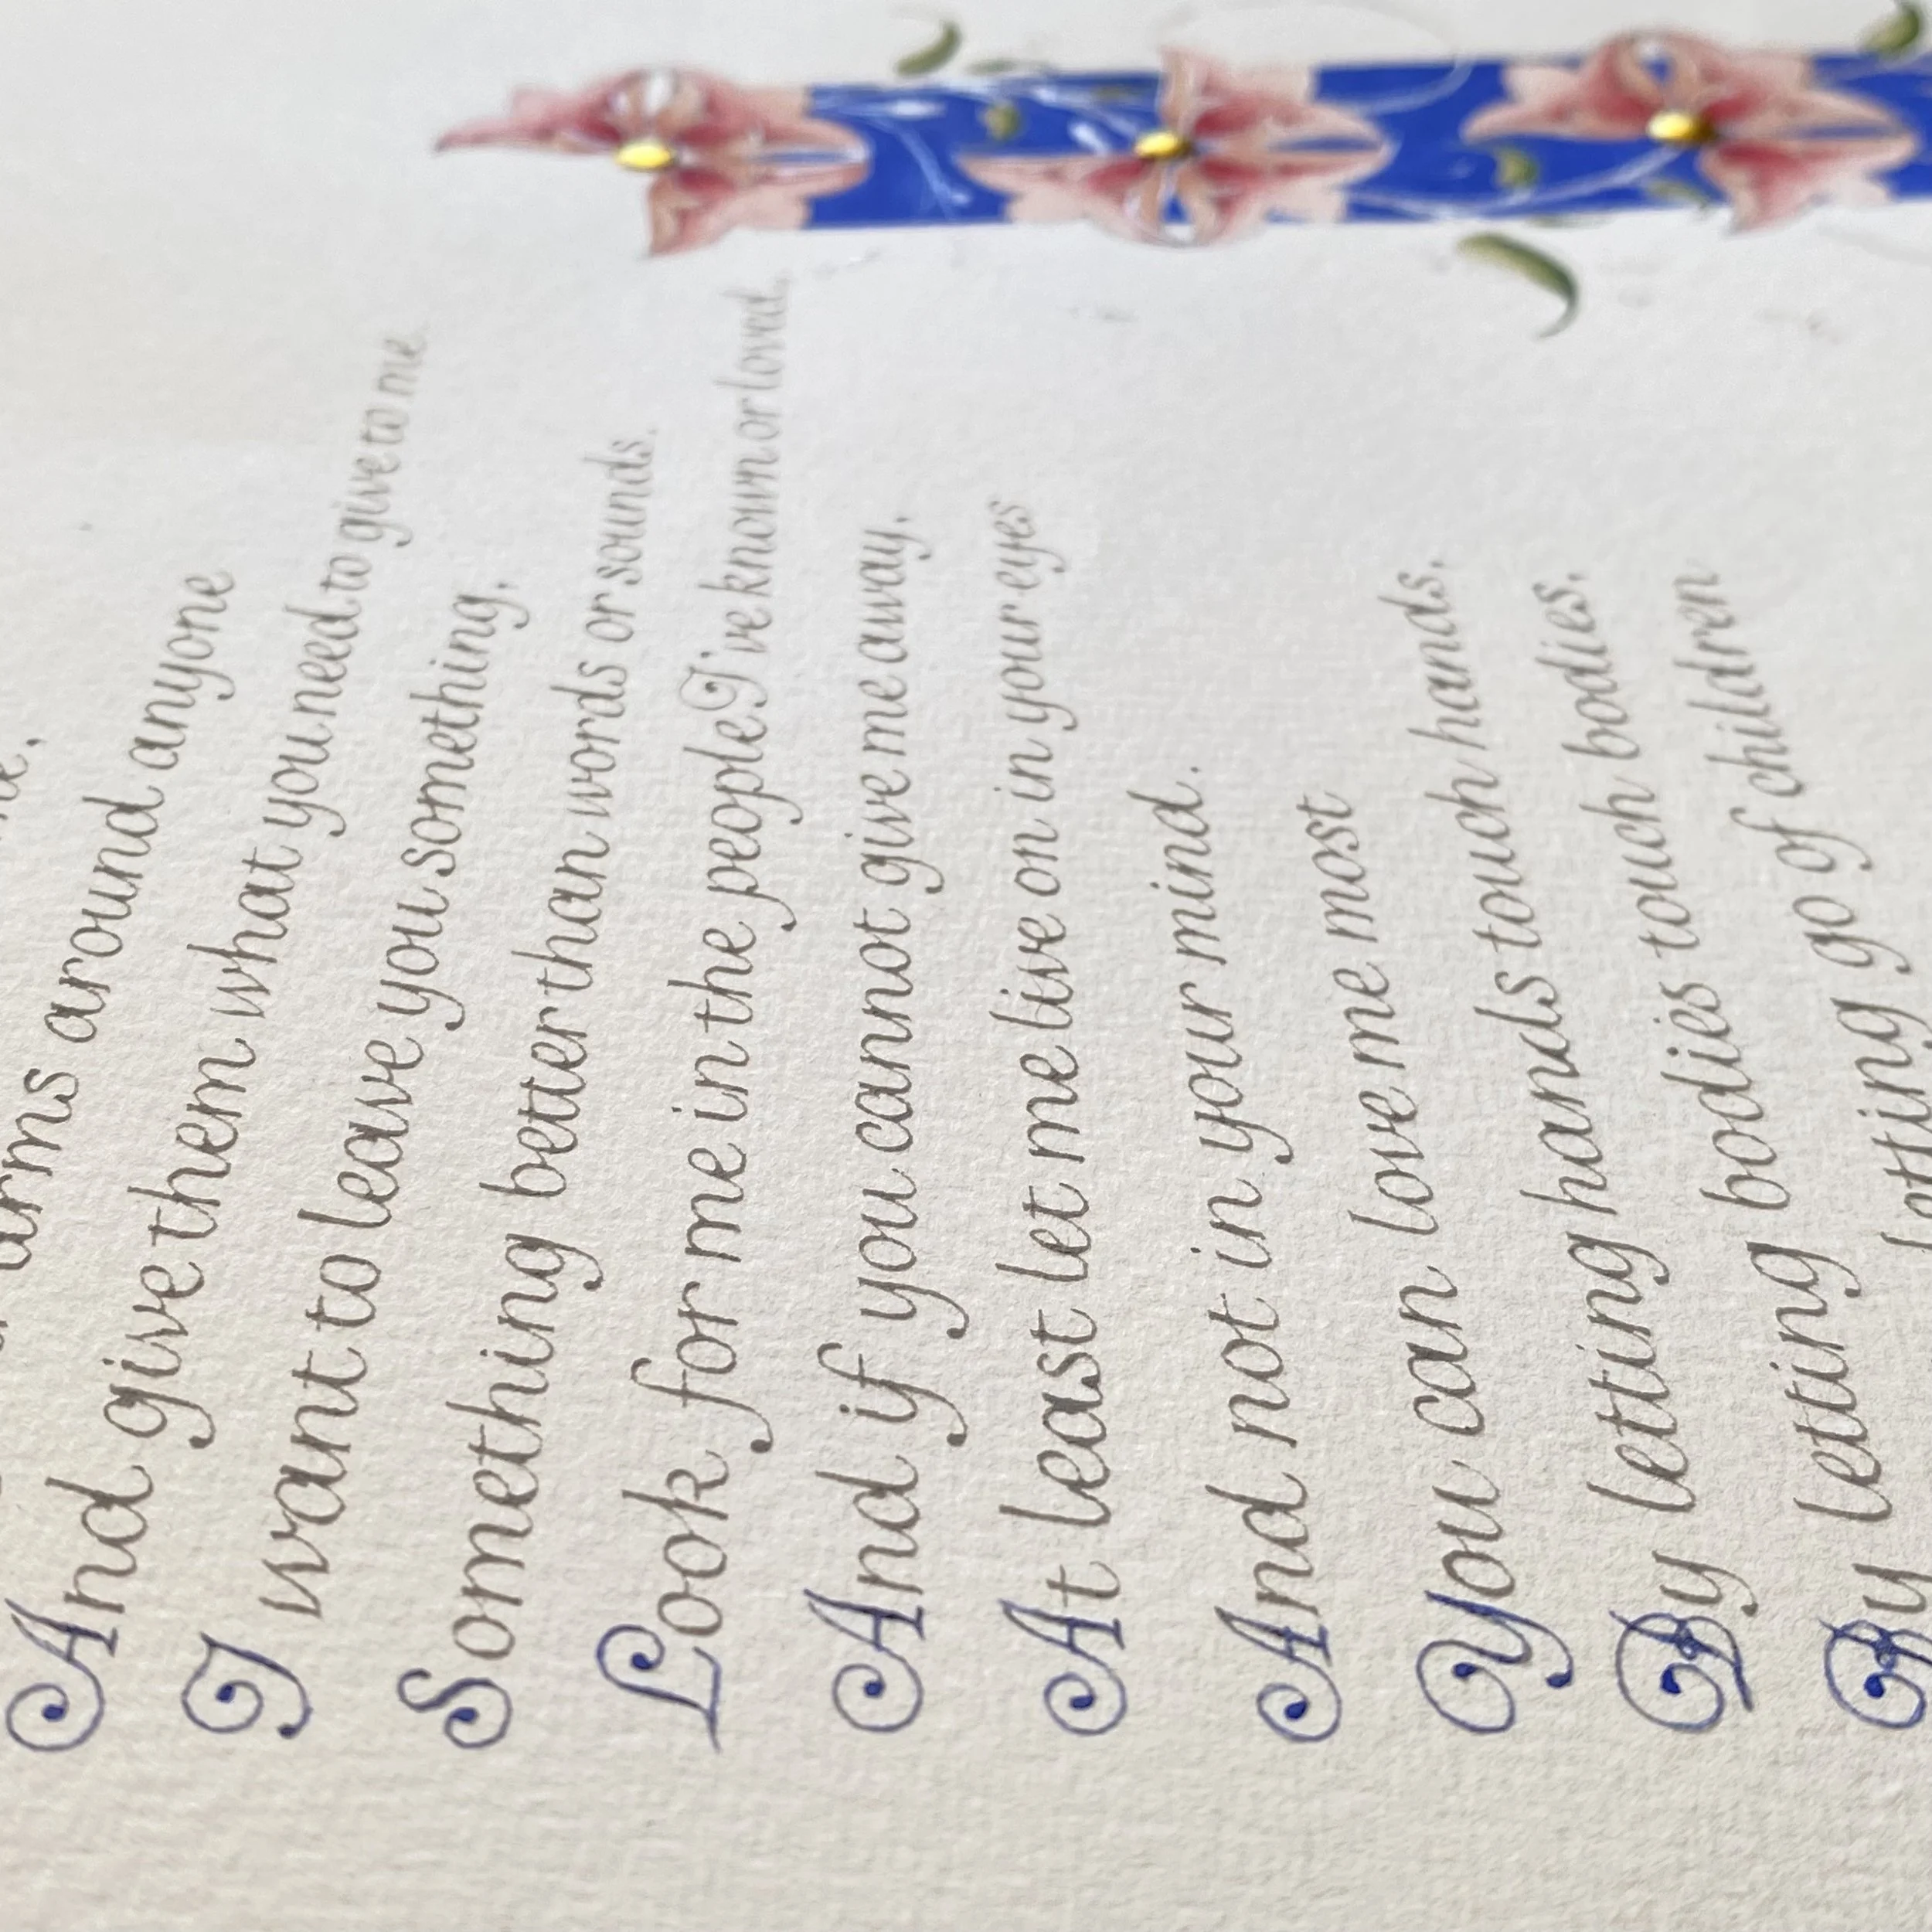 arms around anyone
And give them what you need to give to me
I want to leave you something,
Something better than words or sounds.
Look for me in the people I've known or loved.
And if you cannot give me away,
At least let me live on in your eyes
And not in your mind.
You can love me most
By letting hands touch hands.
By letting bodies touch bodies.
letting go of children